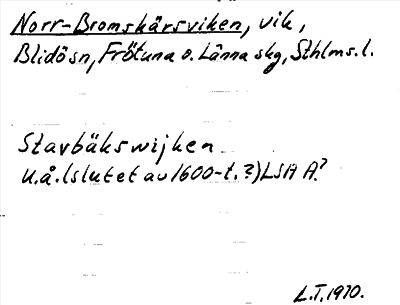 Norr-Bromskärsviken, vik,
Blidö sn, Frötuna o. Länna skg, Sthlms. l.
Stavbäkswijken
u.å. (slutet av 1600-t.?) LSA A?
L.T. 1970.